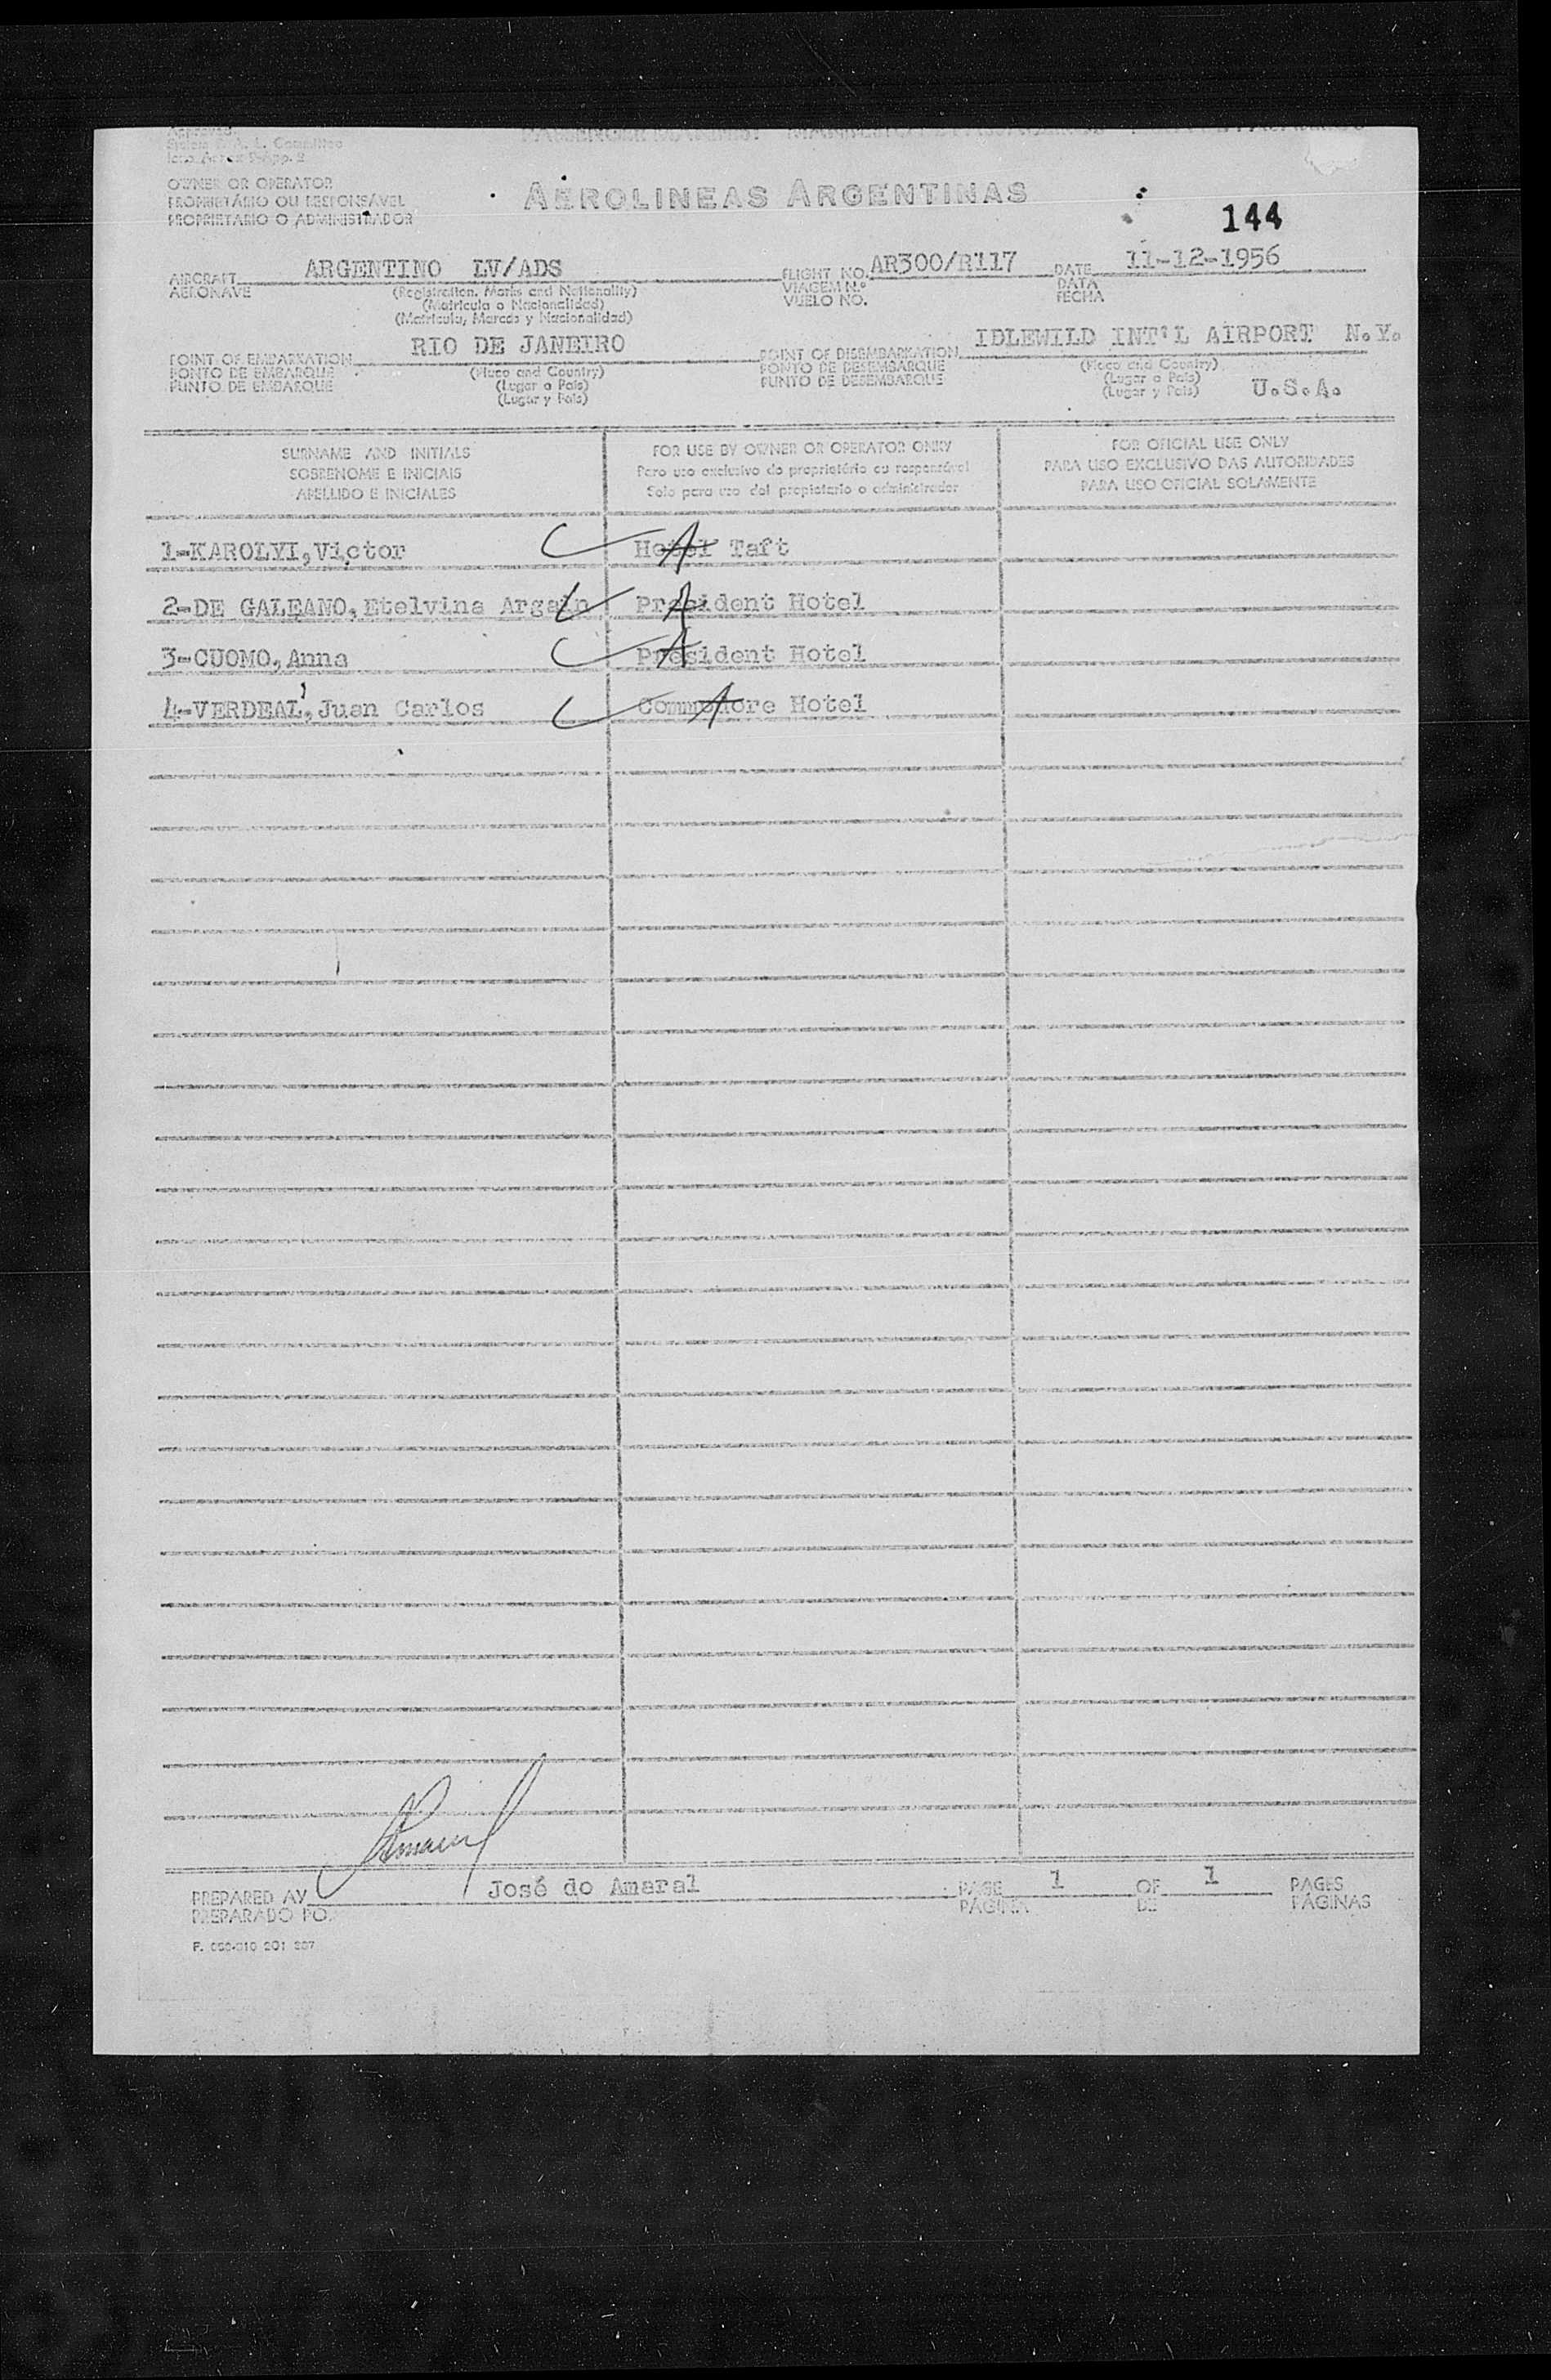 Approved.
PASSENGER MANIFEST
OWNER OR OPERATOR
PROPRIETÁRIO OU RESPONSÁVEL
PROPRIETARIO O ADMINISTRADOR
AEROLINEAS ARGENTINAS
144
AIRCRAFT ARGENTINO LV/ADS FLIGHT NO. AR300/R117 DATE 11-12-1956
AERONAVE (Registration, Marks and Nationality) VIAGEM N.º DATA
(Matrícula o Nacionalidad) VUELO NO. FECHA
(Matrícula, Marcas y Nacionalidad)
POINT OF EMBARKATION RIO DE JANEIRO POINT OF DISEMBARKATION IDLEWILD INT'L AIRPORT N.Y.
PONTO DE EMBARQUE (Place and Country) PONTO DE DESEMBARQUE (Place and Country)
PUNTO DE EMBARQUE (Lugar o País) PUNTO DE DESEMBARQUE (Lugar o País)
(Lugar y País) (Lugar y País) U.S.A.
SURNAME AND INITIALS FOR USE BY OWNER OR OPERATOR ONLY FOR OFICIAL USE ONLY
SOBRENOME E INICIAIS Para uso exclusivo do proprietário ou responsável PARA USO EXCLUSIVO DAS AUTORIDADES
APELLIDO E INICIALES Solo para uso del propietario o administrador PARA USO OFICIAL SOLAMENTE
1-KAROLYI,Victor Hotel Taft
2-DE GALEANO,Etelvina Argain President Hotel
3-CUOMO,Anna President Hotel
4-VERDEAL,Juan Carlos Hotel
PREPARED AV José do Amaral PAGE 1 OF 1 PAGES
PREPARADO PO. PÁGINA DE PÁGINAS